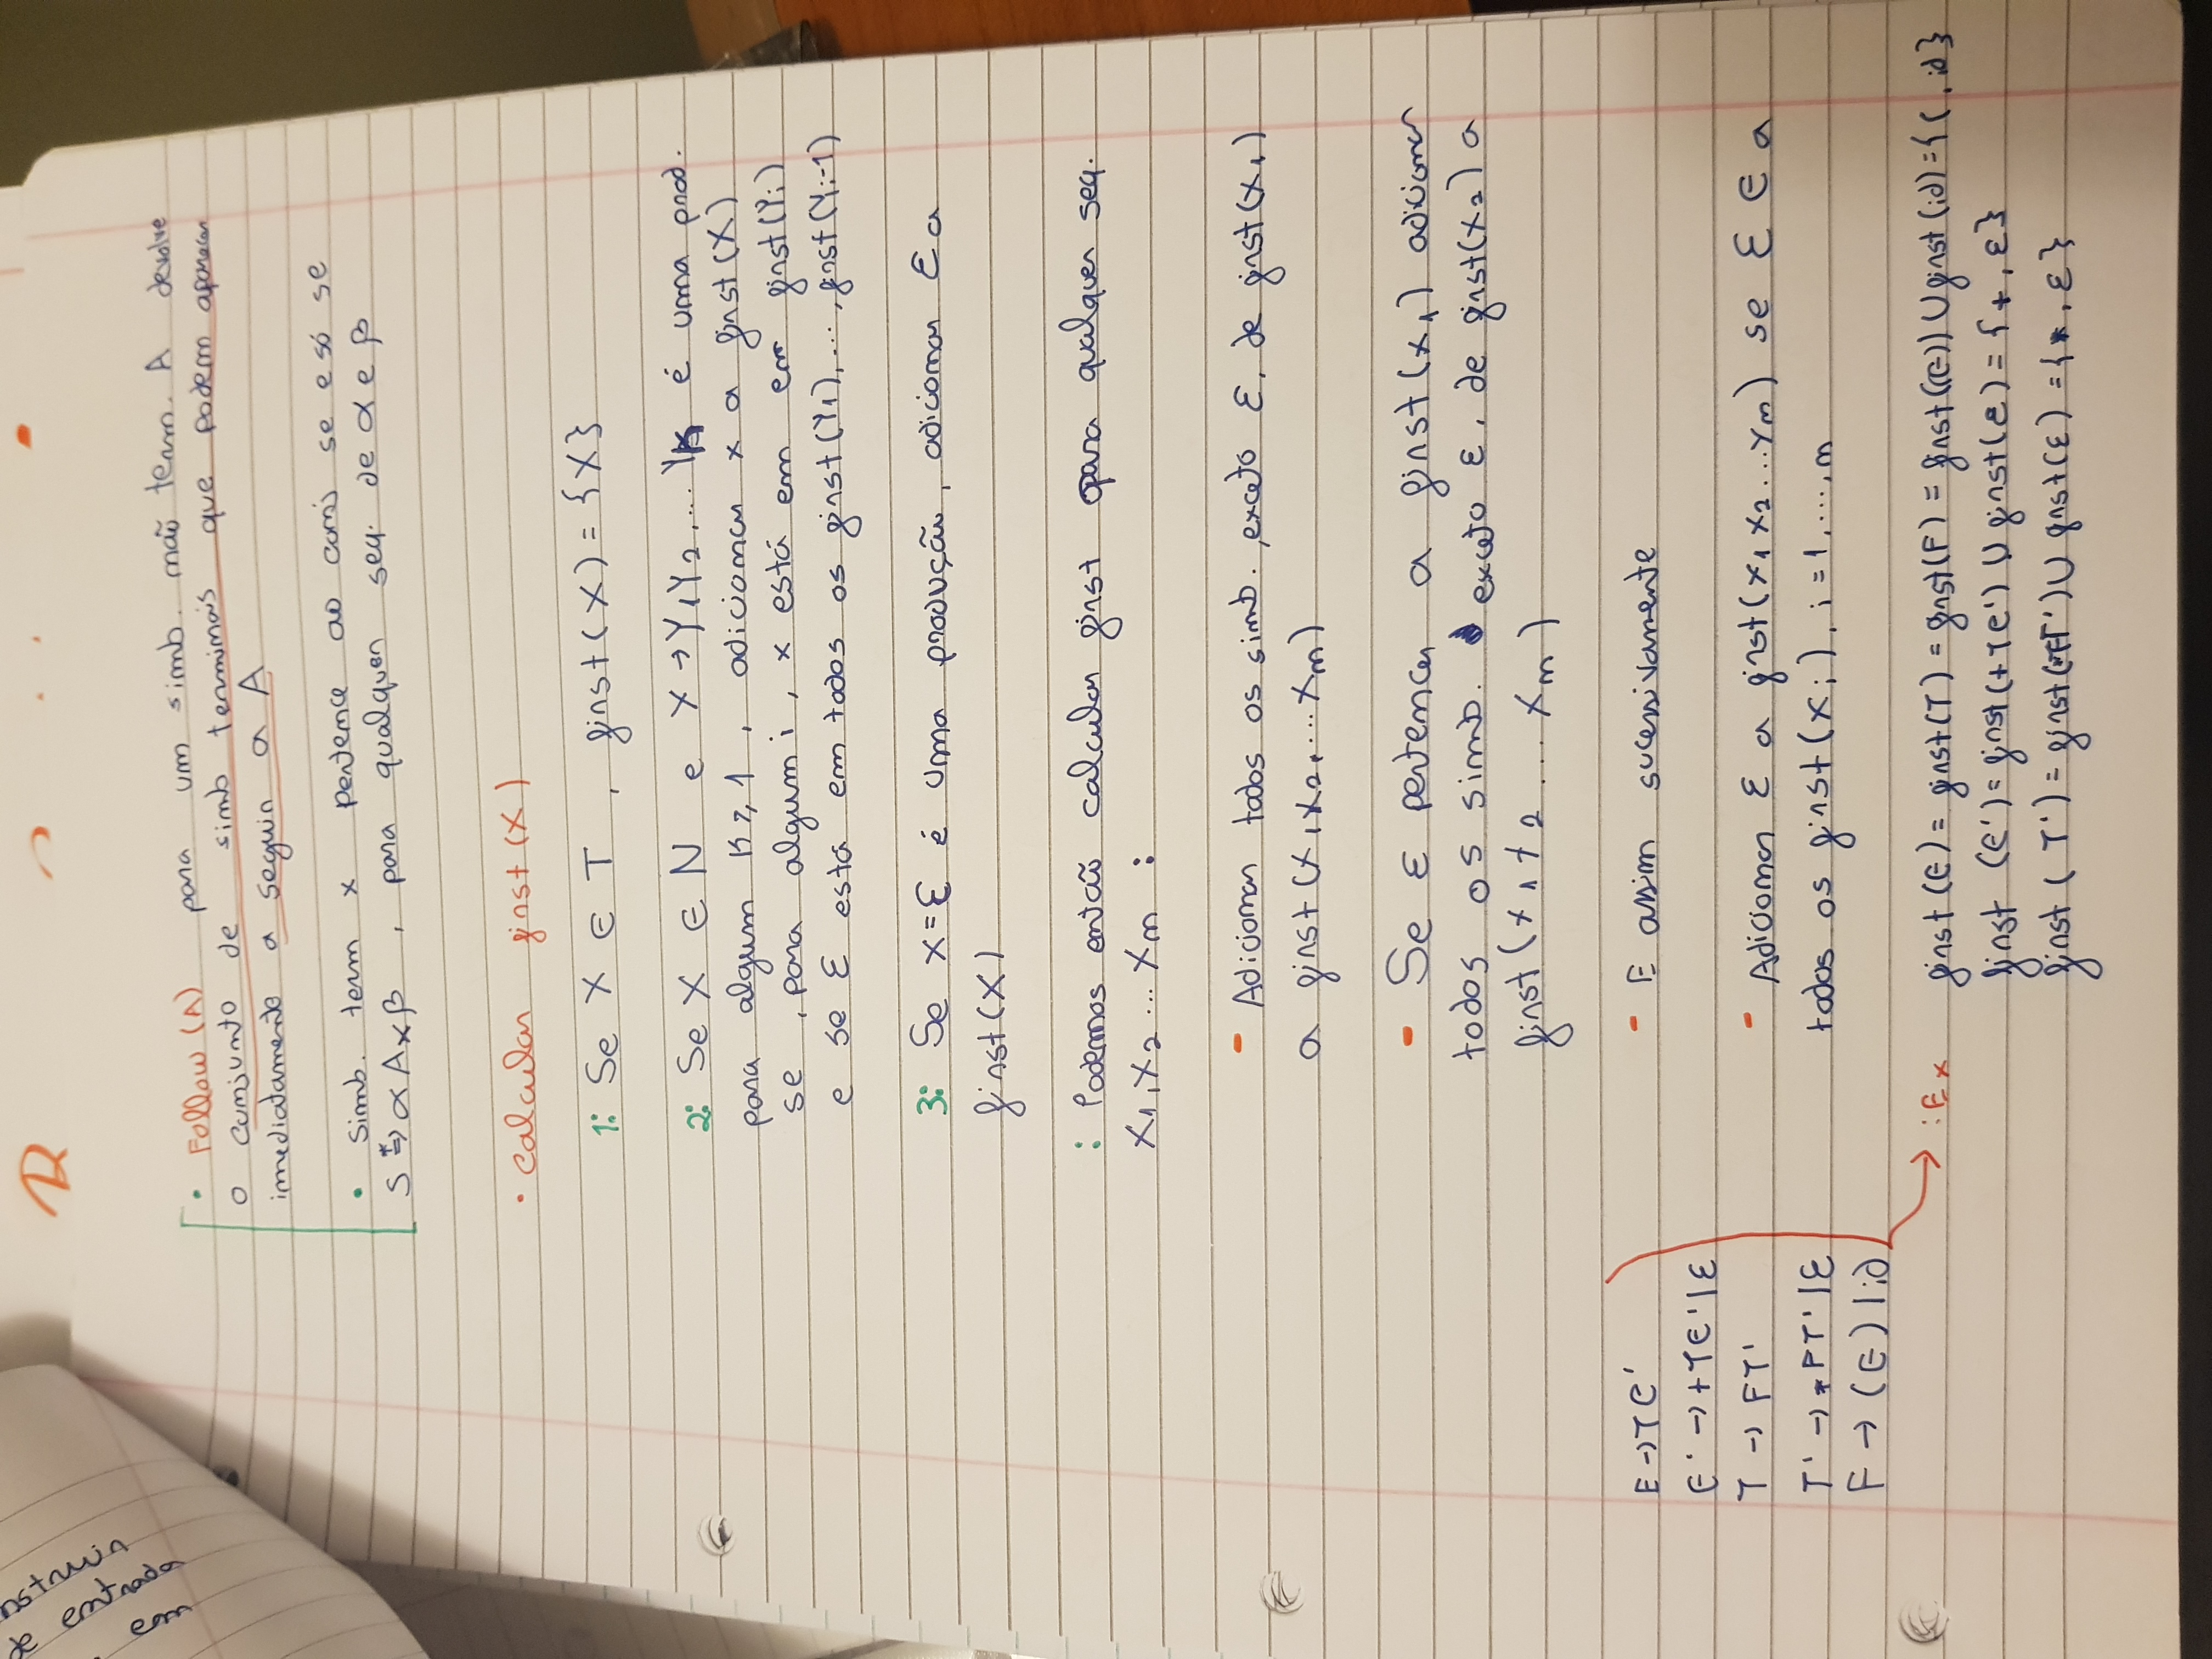 nstruir
de entrada
em
• Follow (A) para um simb. não term. A devolve
o conjunto de simb terminais que podem aparecer
imediatamente a seguir a A
• Simb. term x pertence ao conj se e só se
S *⇒ α A x β , para qualquer seq. de α e β
• Calcular first (X)
1: Se X ∈ T , first (X) = {X}
2: Se X ∈ N e X → Y1 Y2 , ... Yk é uma prod.
para algum K ≥ 1 , adicionar x a first (X)
se , para algum i , x está em em first (Yi)
e se ε está em todos os first (Y1), ... , first (Yi-1)
3: Se X = ε é uma produção, adicionar ε a
first (X)
: Podemos então calcular first para qualquer seq.
X1, X2 ... Xn :
- Adicionar todos os simb. , exceto ε, de first (X1)
a first (X1 X2, ... Xn)
- Se ε pertencer a first (X1) adicionar
todos os simb. exceto ε, de first (X2) a
first (X1 X2 ... Xn)
- E assim sucessivamente
- Adicionar ε a first (X1 X2 ... Xn) se ε ∈ a
todos os first (Xi), i = 1, ..., n
E → T E'
E' → + T E' | ε
T → F T'
T' → * F T' | ε
F → (E) | id
: Ex first (E) = first (T) = first (F) = first ((E)) ∪ first (id) = { ( , id }
first (E') = first (+ T E') ∪ first (ε) = { + , ε }
first (T') = first (*FT') ∪ first (ε) = { * , ε }